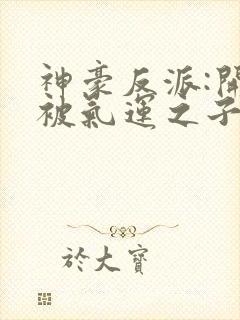 神豪反派:開
被氣運之子
於大寶